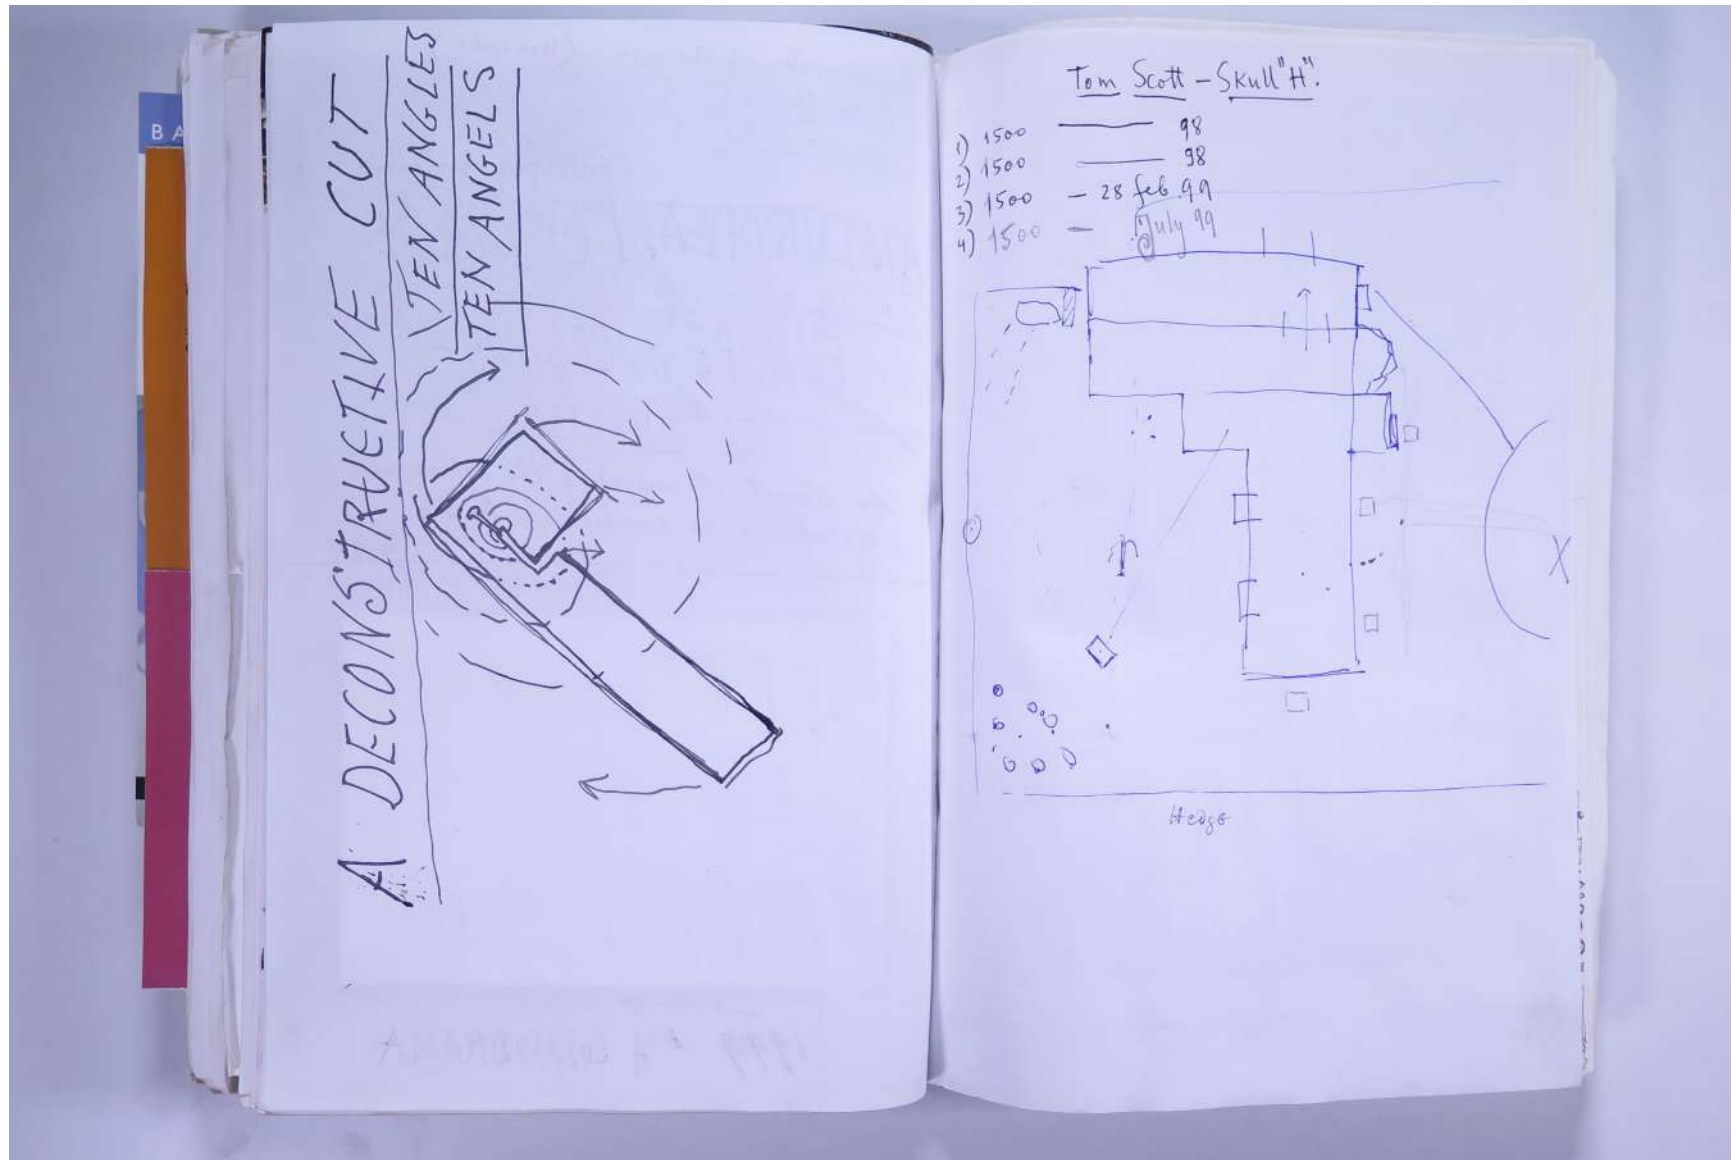 BA
A DECONSTRUCTIVE CUT
TEN ANGLES
TEN ANGELS
Tom Scott - Skull "H".
1) 1500 — 98
2) 1500 — 98
3) 1500 - 28 feb. 99
4) 1500 - July 99
Hedge